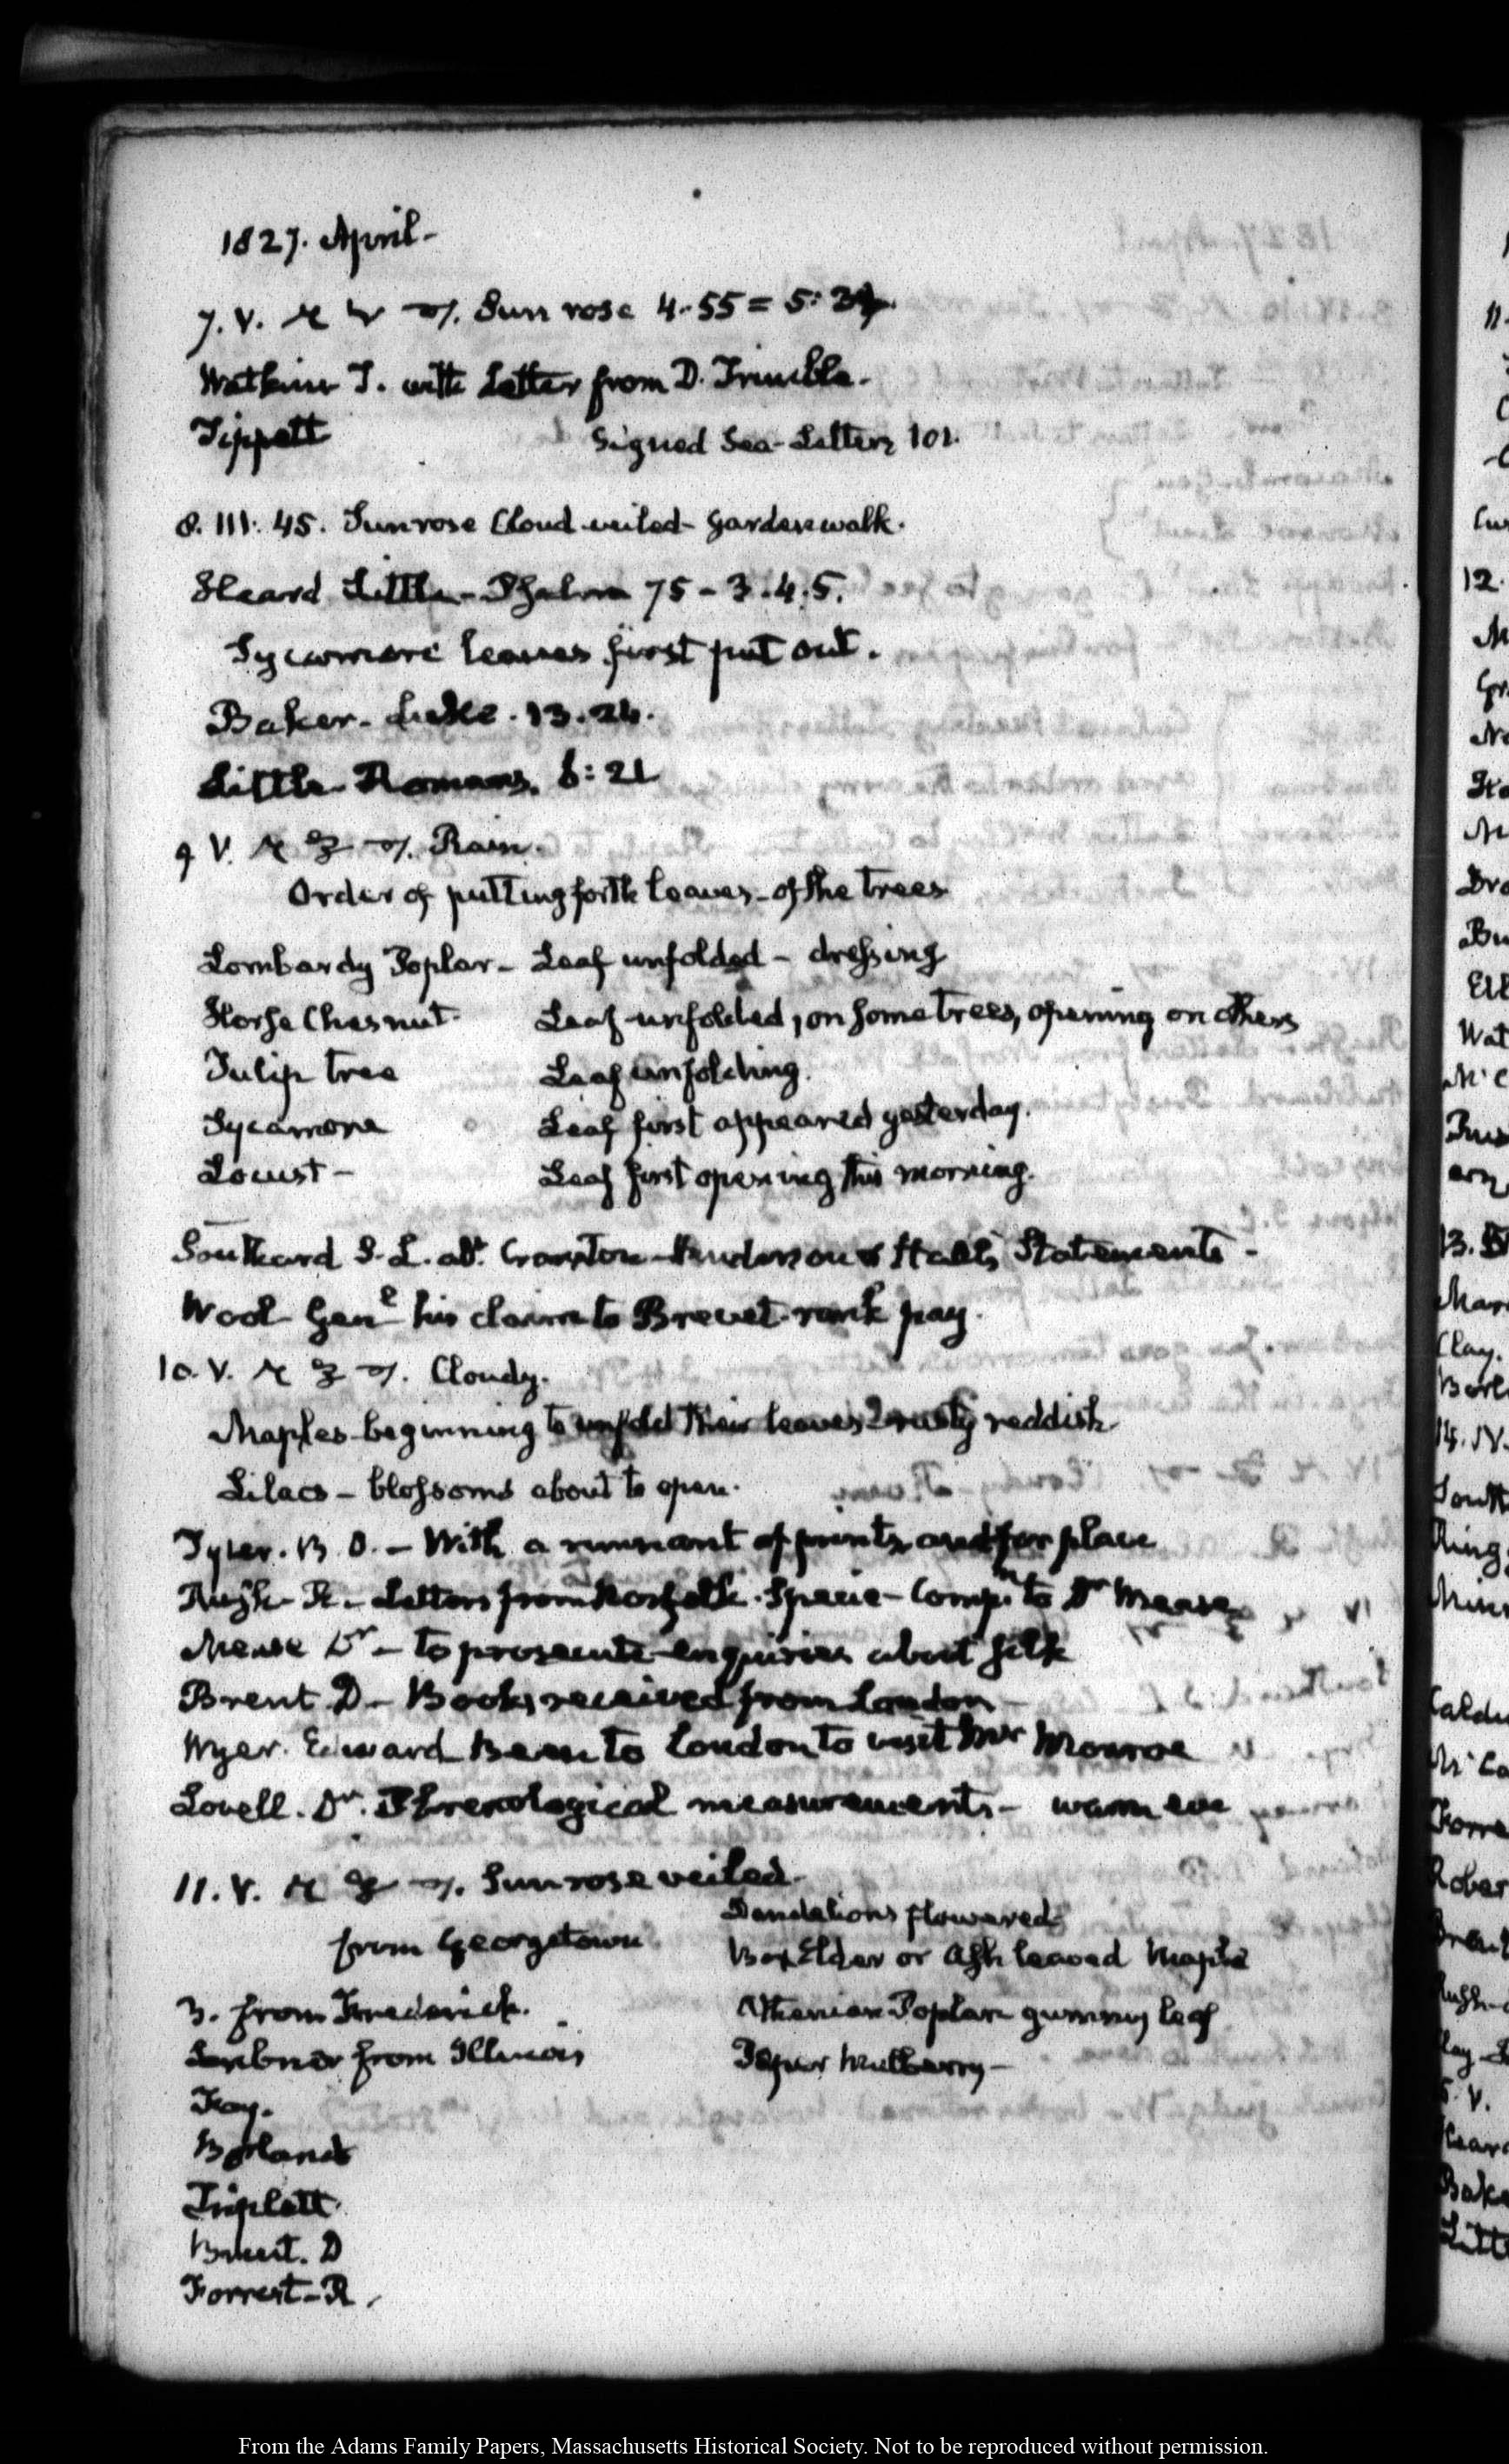 1827. April-
7. V. Sun rose 4-55 = 5:
Watkins T. with Letter from D. Trimble.
Tippett Signed Sea-Letters 101.
8. III. 45. Sun rose Cloud veiled- garden walk.
Heard Little- Psalm 75-3.4.5.
Sycamore leaves first put out.
Baker- Luke. 13.24.
Little- Romans. 6:21
9 V. Rain.
Order of putting forth leaves- of the trees
Lombardy Poplar- Leaf unfolded- dressing
Horse Chesnut- Leaf unfolded, on some trees, opening on others
Tulip tree Leaf unfolding.
Sycamore Leaf first appeared yesterday.
Locust- Leaf first opening this morning.
Southard S. L. abt. Statements-
Wool Genl his claim to Brevet-rank pay.
10. V. Cloudy.
Maples beginning to unfold their leaves rusty reddish
Lilacs- blossoms about to open.
- With a remnant of prints and for place
Rush- R- Letters from Norfolk. Specie- to Dr Mease
Mease Dr- to prosecute enquiries about silk
Brent D- Books received from London-
Wyer. Edward Been to Loudon to visit Mr Monroe
Lovell. Dr. Phrenological measurements- warm eve
11. V. Sun rose veiled-
Dandelions flowered
from Georgetown
Box Elder or Ash leaved Maple
3. from Frederick.
Athenian Poplar gummy leaf
from Illinois
Paper Mulberry-
Kay.
Borland
Triplett
Brent. D
Forrest-R.
11.
12.
13.
Clay.
14. IV.
From the Adams Family Papers, Massachusetts Historical Society. Not to be reproduced without permission.